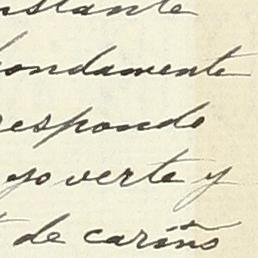 nstante
hondamente
responde
yo verte y
de cariño